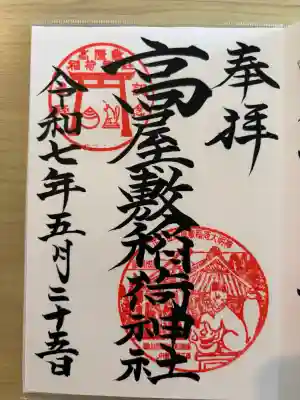 奉拝
高屋敷稲荷神社
令和七年五月二十五日